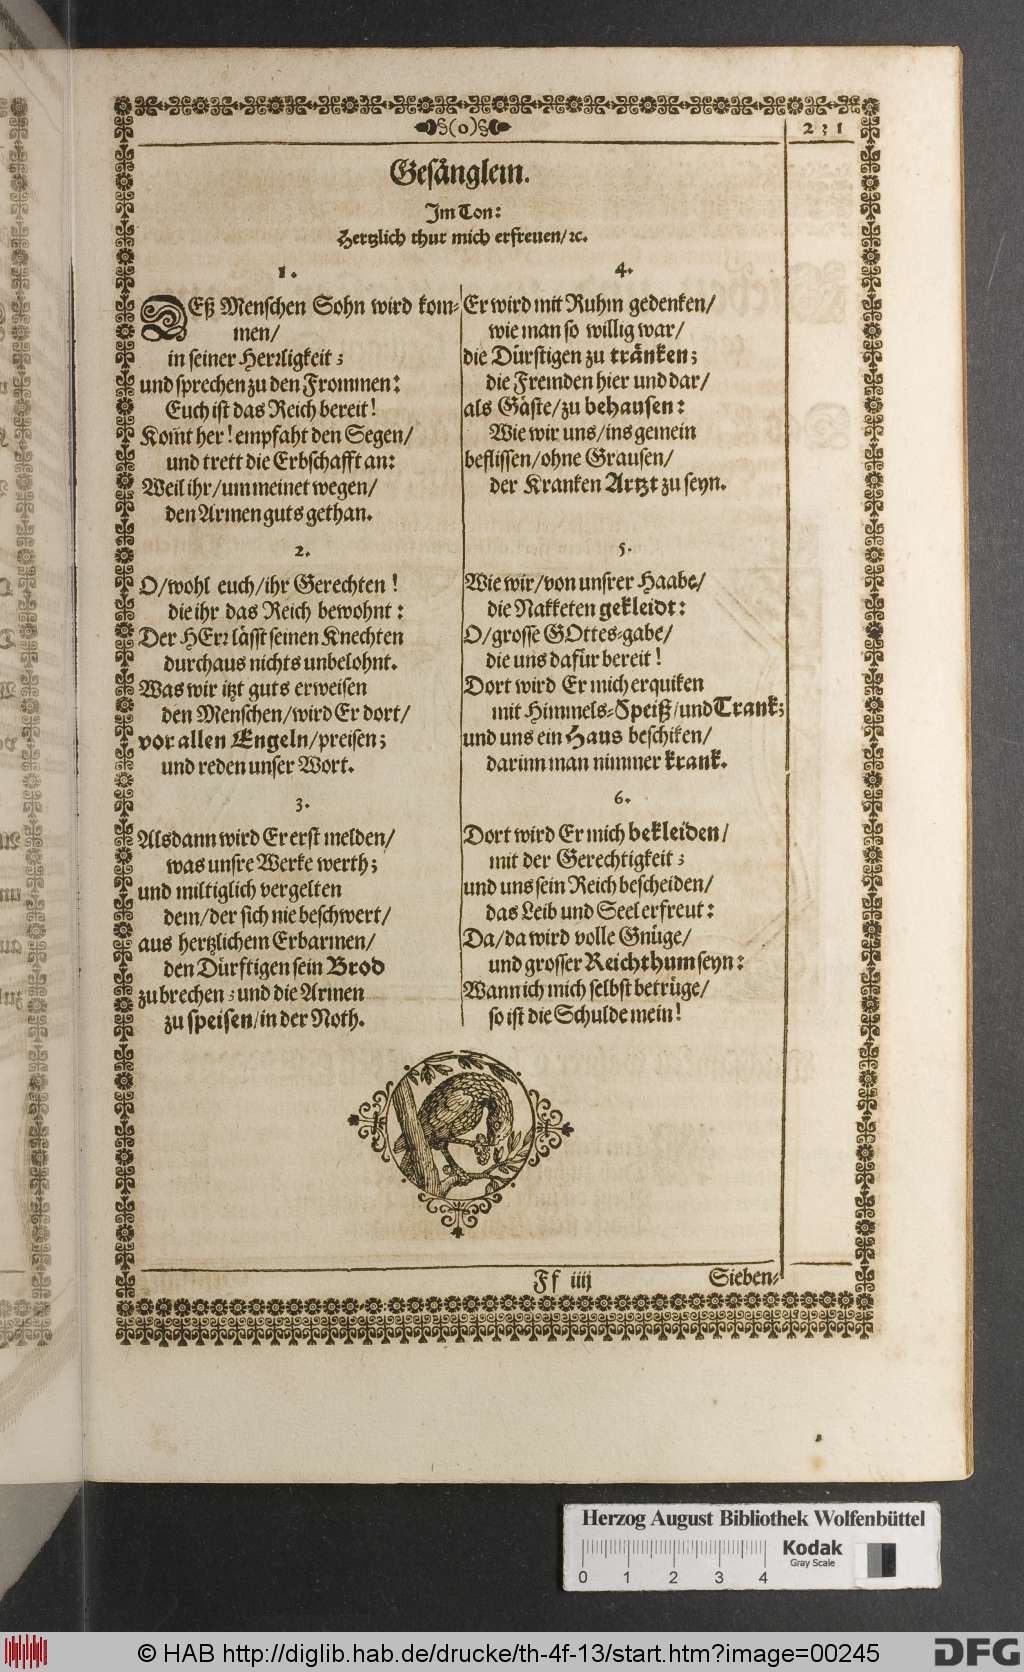 §(o)§
231
Gesånglein.
Im Ton:
Hertzlich thut mich erfreuen/ꝛc.
1.
DEß Menschen Sohn wird kom-
men/
in seiner Herrligkeit;
und sprechen zu den Frommen:
Euch ist das Reich bereit!
Kom̃t her! empfaht den Segen/
und trett die Erbschafft an:
Weil ihr/um meinet wegen/
den Armen guts gethan.
2.
O/wohl euch/ihr Gerechten!
die ihr das Reich bewohnt:
Der HErr lässt seinen Knechten
durchaus nichts unbelohnt.
Was wir itzt guts erweisen
den Menschen/wird Er dort/
vor allen Engeln/preisen;
und reden unser Wort.
3.
Alsdann wird Er erst melden/
was unsre Werke werth;
und miltiglich vergelten
dem/der sich nie beschwert/
aus hertzlichem Erbarmen/
den Dürftigen sein Brod
zu brechen; und die Armen
zu speisen/in der Noth.
4.
Er wird mit Ruhm gedenken/
wie man so willig war/
die Dürstigen zu tränken;
die Fremden hier und dar/
als Gäste/zu behausen:
Wie wir uns/ins gemein
beflissen/ohne Grausen/
der Kranken Artzt zu seyn.
5.
Wie wir/von unsrer Haabe/
die Nakketen gekleidt:
O/grosse GOttes-gabe/
die uns dafür bereit!
Dort wird Er mich erquiken
mit Himmels-Speiß/und Trank;
und uns ein Haus beschiken/
darinn man nimmer krank.
6.
Dort wird Er mich bekleiden/
mit der Gerechtigkeit;
und uns sein Reich bescheiden/
das Leib und Seel erfreut:
Da/da wird volle Gnüge/
und grosser Reichthum seyn:
Wann ich mich selbst betrüge/
so ist die Schulde mein!
Ff iiij
Sieben-
Herzog August Bibliothek Wolfenbüttel
Kodak
Gray Scale
0 1 2 3 4
© HAB http://diglib.hab.de/drucke/th-4f-13/start.htm?image=00245
DFG